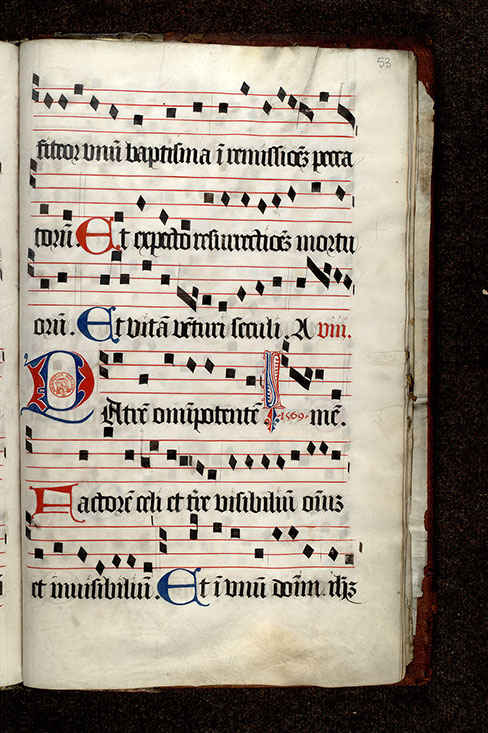 53
fiteor vnū baptisma ī remissiōēs pecca
torū. Et expecto resurrectiōēs mortu
orū. Et vitā vēturi seculi. A viii.
PAtrē omīpotentē. 1569. mē.
Factorē celi et tīre visibiliū oīuꝫ
et inuisibiliū. Et ī vnū dōm̄. ihꝫ